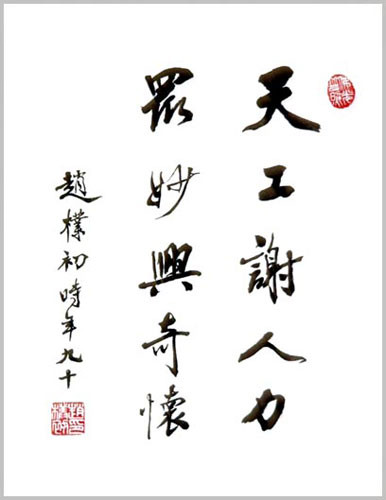 天工謝人力
眾妙興奇懷
趙樸初時年九十